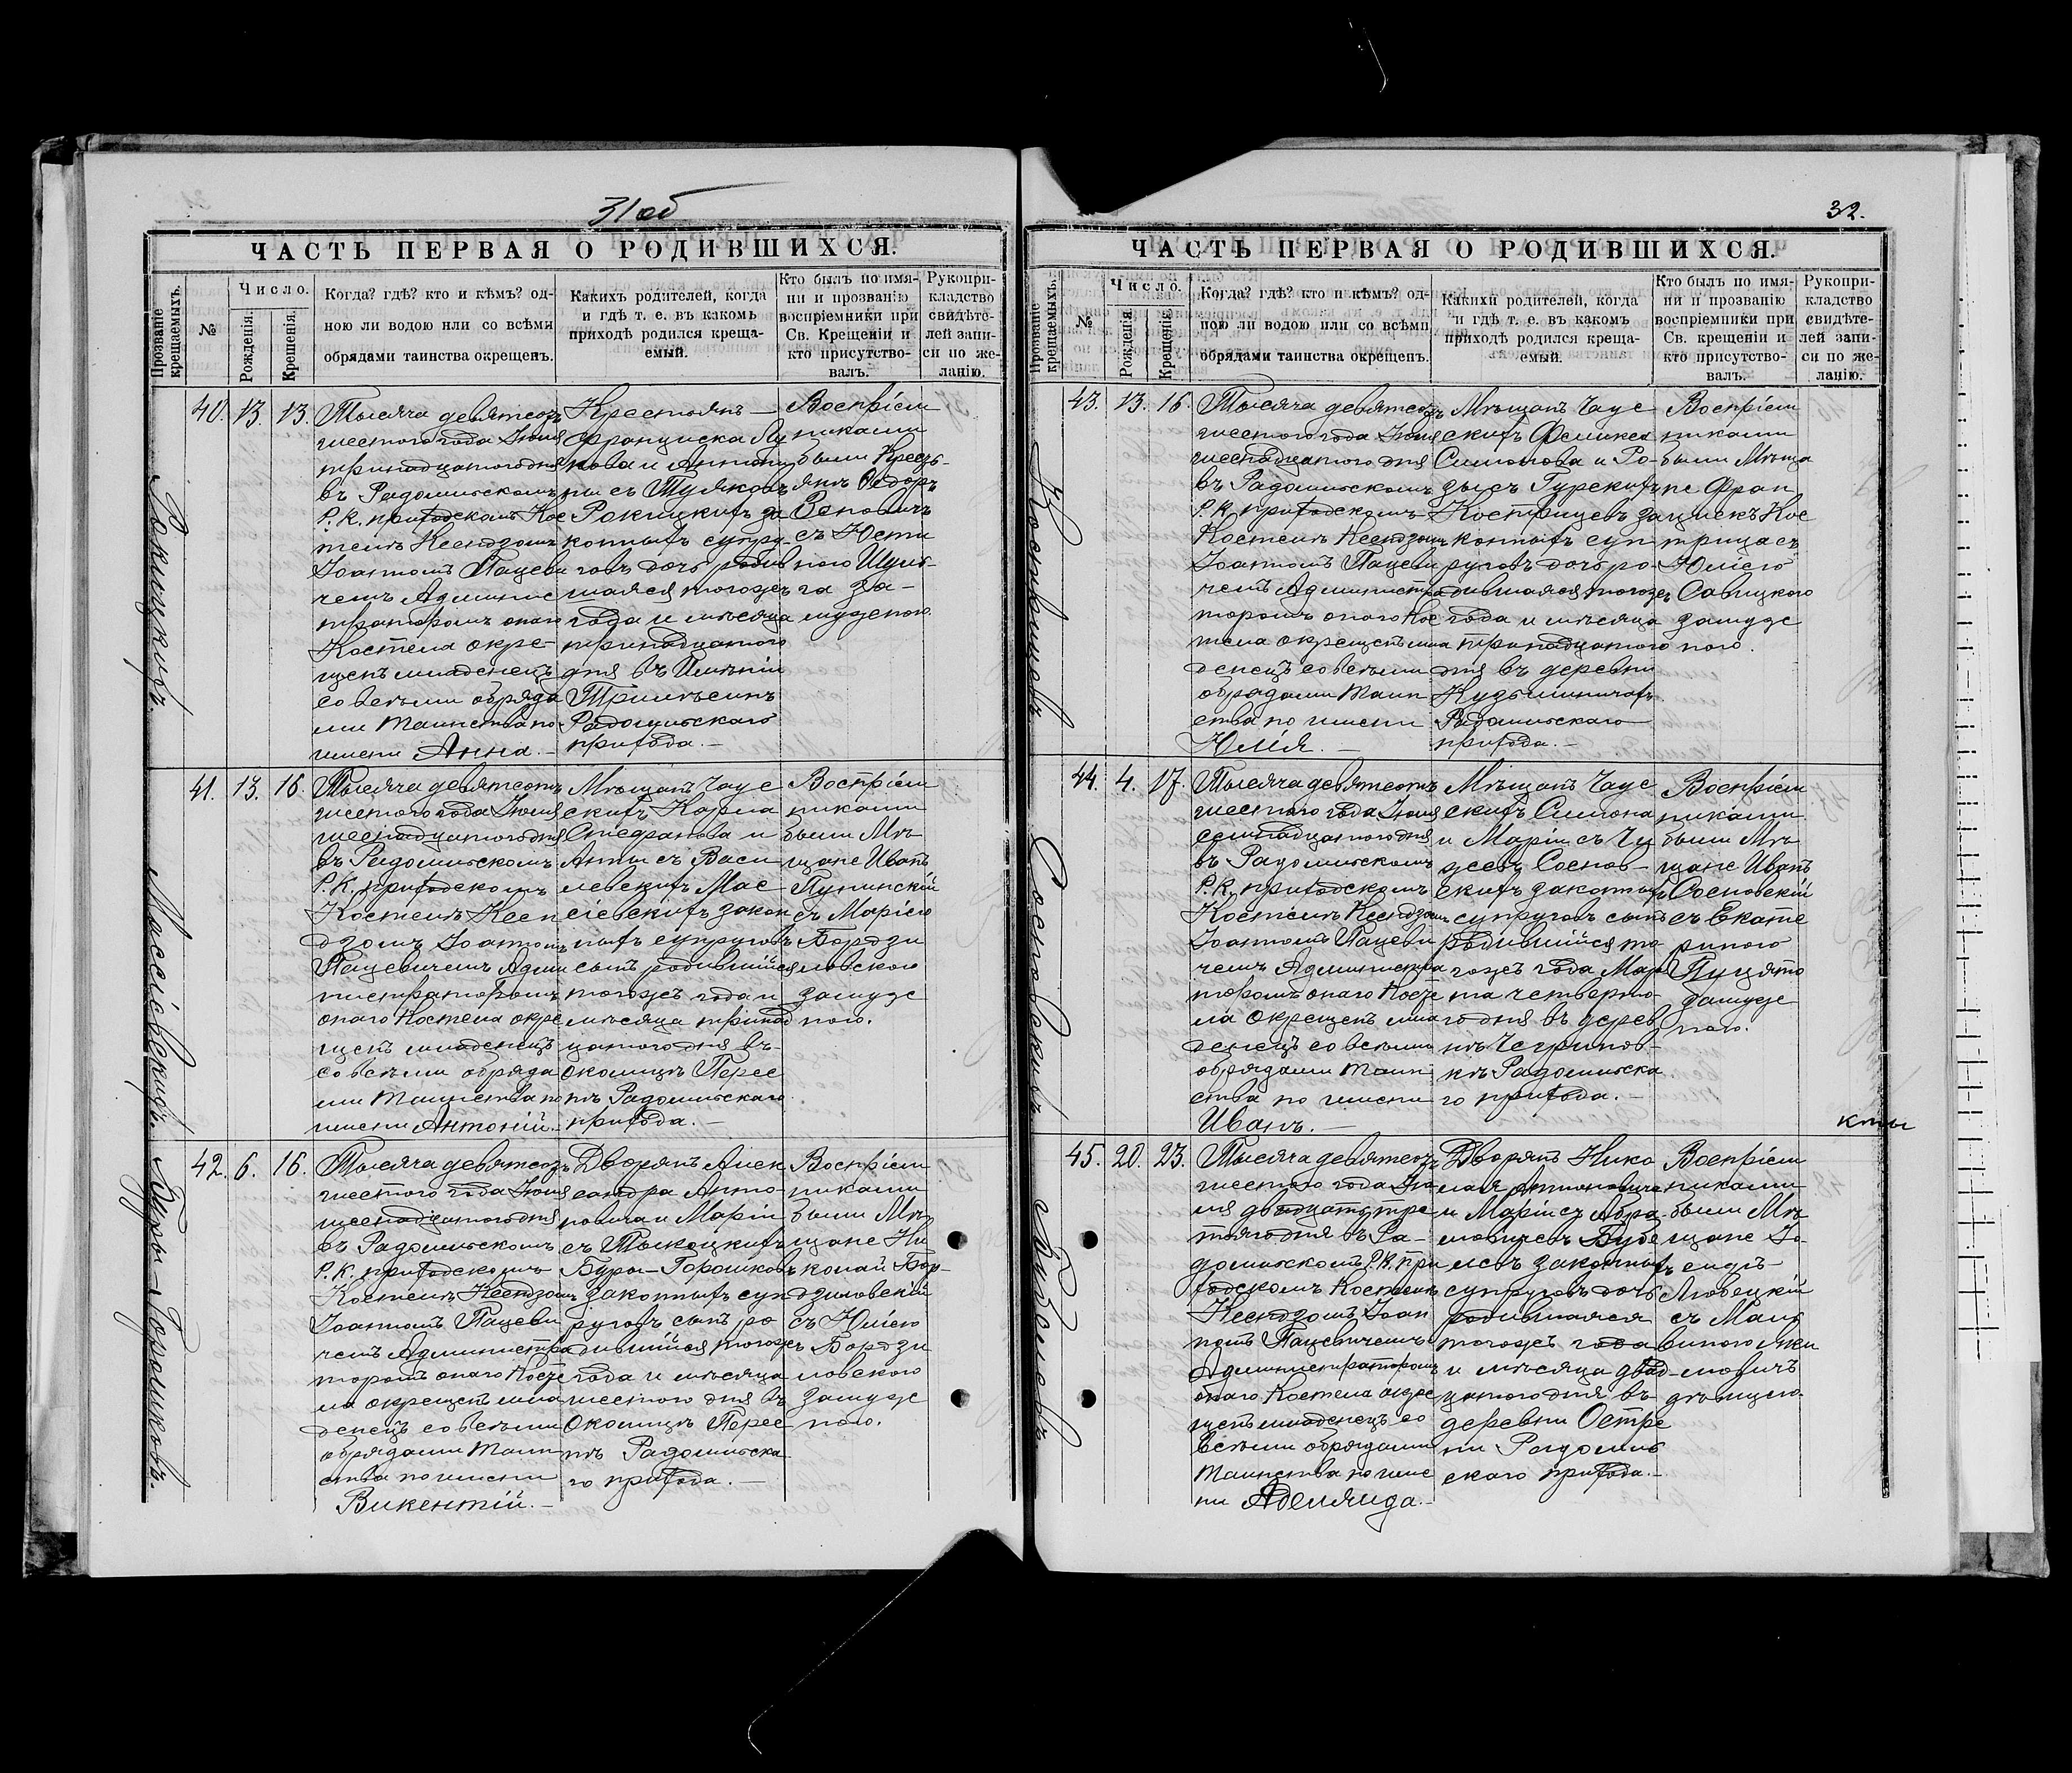 31об
ЧАСТЬ ПЕРВАЯ О РОДИВШИХСЯ.
Прозваніе крещаемыхъ.
№
Число.
Рожденія.
Крещенія.
Когда? гдѣ? кто и кѣмъ? од-
ною ли водою или со всѣми
обрядами таинства окрещенъ.
Какихъ родителей, когда
и гдѣ т. е. въ какомъ
приходѣ родился креща-
емый.
Кто былъ по имя-
ни и прозванію
воспріемники при
Св. Крещеніи и
кто присутство-
валъ.
Рукопри-
кладство
свидѣте-
лей запи-
си по же-
ланію.
Рокицкихъ.
40. 13. 13.
Тысяча девятсотъ
шестого года Іюня
тринадцатого дня
въ Радомльскомъ
Р. К. приходскомъ Кос
телѣ Ксендзомъ
Іоанномъ Пацеви
чемъ Админис
траторомъ онаго
Костела окре-
щенъ младенецъ
со всѣми обряда
ми Таинства по
имени Анна.—
Крестьянъ —
Франциска Лу
кова и Антони
ны съ Туляковъ
Рокицкихъ за
конныхъ супру-
говъ дочь родив
шаяся тогожъ
года и мѣсяца
тринадцатого
дня въ Имѣніи
Радомльскаго
прихода.—
Воспріем
никами
были Кресть-
яне Ѳедоръ
съ Юсти
ною
га За-
мужною.
Массіевскихъ.
41. 13. 16.
Тысяча девятсотъ
шестого года Іюня
шеснадцатого дня
въ Радомльскомъ
Р. К. приходскомъ
Костелѣ Ксен
дзомъ Іоанномъ
Пацевичемъ Адми
нистраторомъ
онаго Костела окре
щенъ младенецъ
со всѣми обряда
ми Таинства по
имени Антоній.—
Мѣщанъ Чаус
скихъ Карла
Стефанова и
Анны съ Васи
левскихъ Мас
сіевскихъ закон
ныхъ супруговъ
сынъ родившійся
тогожъ года и
мѣсяца тринад
цатого дня въ
околицѣ Перес
пѣ Радомльскаго
прихода.—
Воспріем
никами
были Мѣ
щане Иванъ
Пупинскій
съ Маріею
Бордзи
ловскою
замуж
ною.
Буры-Горошковъ.
42. 6. 16.
Тысяча девятсотъ
шестого года Іюня
шеснадцатого дня
въ Радомльскомъ
Р. К. приходскомъ
Костелѣ Ксендзомъ
Іоанномъ Пацеви
чемъ Администра
торомъ онаго Косте
ла окрещенъ мла
денецъ со всѣми
обрядами Таин
ства по имени
Викентій.—
Дворянъ Алек
сандра Анто-
новича и Маріи
съ Тыкоцкихъ
Буры-Горошковъ
законныхъ суп
руговъ сынъ ро
дившійся тогожъ
года и мѣсяца
шестого дня въ
Околицѣ Перес
пѣ Радомльска
го прихода.—
Воспріем
никами
были Мѣ
щане Ни
колай Бор-
дзиловскій
съ Юліею
Бордзи
ловскою
замуж
ною.
32.
ЧАСТЬ ПЕРВАЯ О РОДИВШИХСЯ.
Прозваніе крещаемыхъ.
№
Число.
Рожденія.
Крещенія.
Когда? гдѣ? кто и кѣмъ? од-
ною ли водою или со всѣми
обрядами таинства окрещенъ.
Какихъ родителей, когда
и гдѣ т. е. въ какомъ
приходѣ родился креща-
емый.
Кто былъ по имя-
ни и прозванію
воспріемники при
Св. крещеніи и
кто присутство-
валъ.
Рукопри-
кладство
свидѣте-
лей запи-
си по же-
ланію.
Кострицевъ
43. 13. 16.
Тысяча девятсотъ
шестого года Іюня
шеснадцатого дня
въ Радомльскомъ
Р. К. приходскомъ
Костелѣ Ксендзомъ
Іоанномъ Пацеви
чемъ Администра
торомъ онаго Кос
тела окрещенъ мла
денецъ со всѣми
обрядами Таин
ства по имени
Юлія.—
Мѣщанъ Чаус
скихъ Феликса
Симонова и Ро-
зы съ Гурскихъ
Кострицевъ за
конныхъ суп
руговъ дочь ро-
дившаяся тогожъ
года и мѣсяца
тринадцатого
дня въ деревни
Кузьминичахъ
Радомльскаго
прихода.—
Воспріем
никами
были Мѣща
не Фран
цискъ Кос
трица съ
Юліею
Савицкою
замуж
ною.
Сосновскихъ
44. 4. 17.
Тысяча девятсотъ
шестого года Іюня
семнадцатого дня
въ Радомльскомъ
Р. К. приходскомъ
Костелѣ Ксендзомъ
Іоанномъ Пацеви
чемъ Администра
торомъ онаго Косте
ла окрещенъ мла
денецъ со всѣми
обрядами Таин
ства по имени
Иванъ.—
Мѣщанъ Чаус
скихъ Симона
и Маріи съ Чу
жевъ Соснов-
скихъ законныхъ
супруговъ сынъ
родившійся то
гожъ года Мар
та четверто-
го дня въ дерев
нѣ Чегринов-
кѣ Радомльска
го прихода.—
Воспріем
никами
были Мѣ
щане Иванъ
Сосновскій
съ Екате
риною
Пуцято
замуж
ною.
кты
45. 20. 23.
Тысяча девятсотъ
шестого года Ію
ня двадцать тре
тяго дня въ Ра-
домльскомъ Р. К. при
ходскомъ Костелѣ
Ксендзомъ Іоан
номъ Пацевичемъ
Администраторомъ
онаго Костела окре
щенъ младенецъ со
всѣми обрядами
Таинства по име
ни Аделяида.—
Дворянъ Нико
лая Антоновича
и Маріи съ Абра-
мовичевъ
законныхъ
супруговъ дочь
родившаяся
тогожъ года
и мѣсяца двад-
цатого дня въ
деревни Остре
ни Радомль
скаго прихода.—
Воспріем
никами
были Мѣ
щане Іо-
сифъ
Любецкій
съ Маль
виною Яки
мовичъ
дѣвицею.